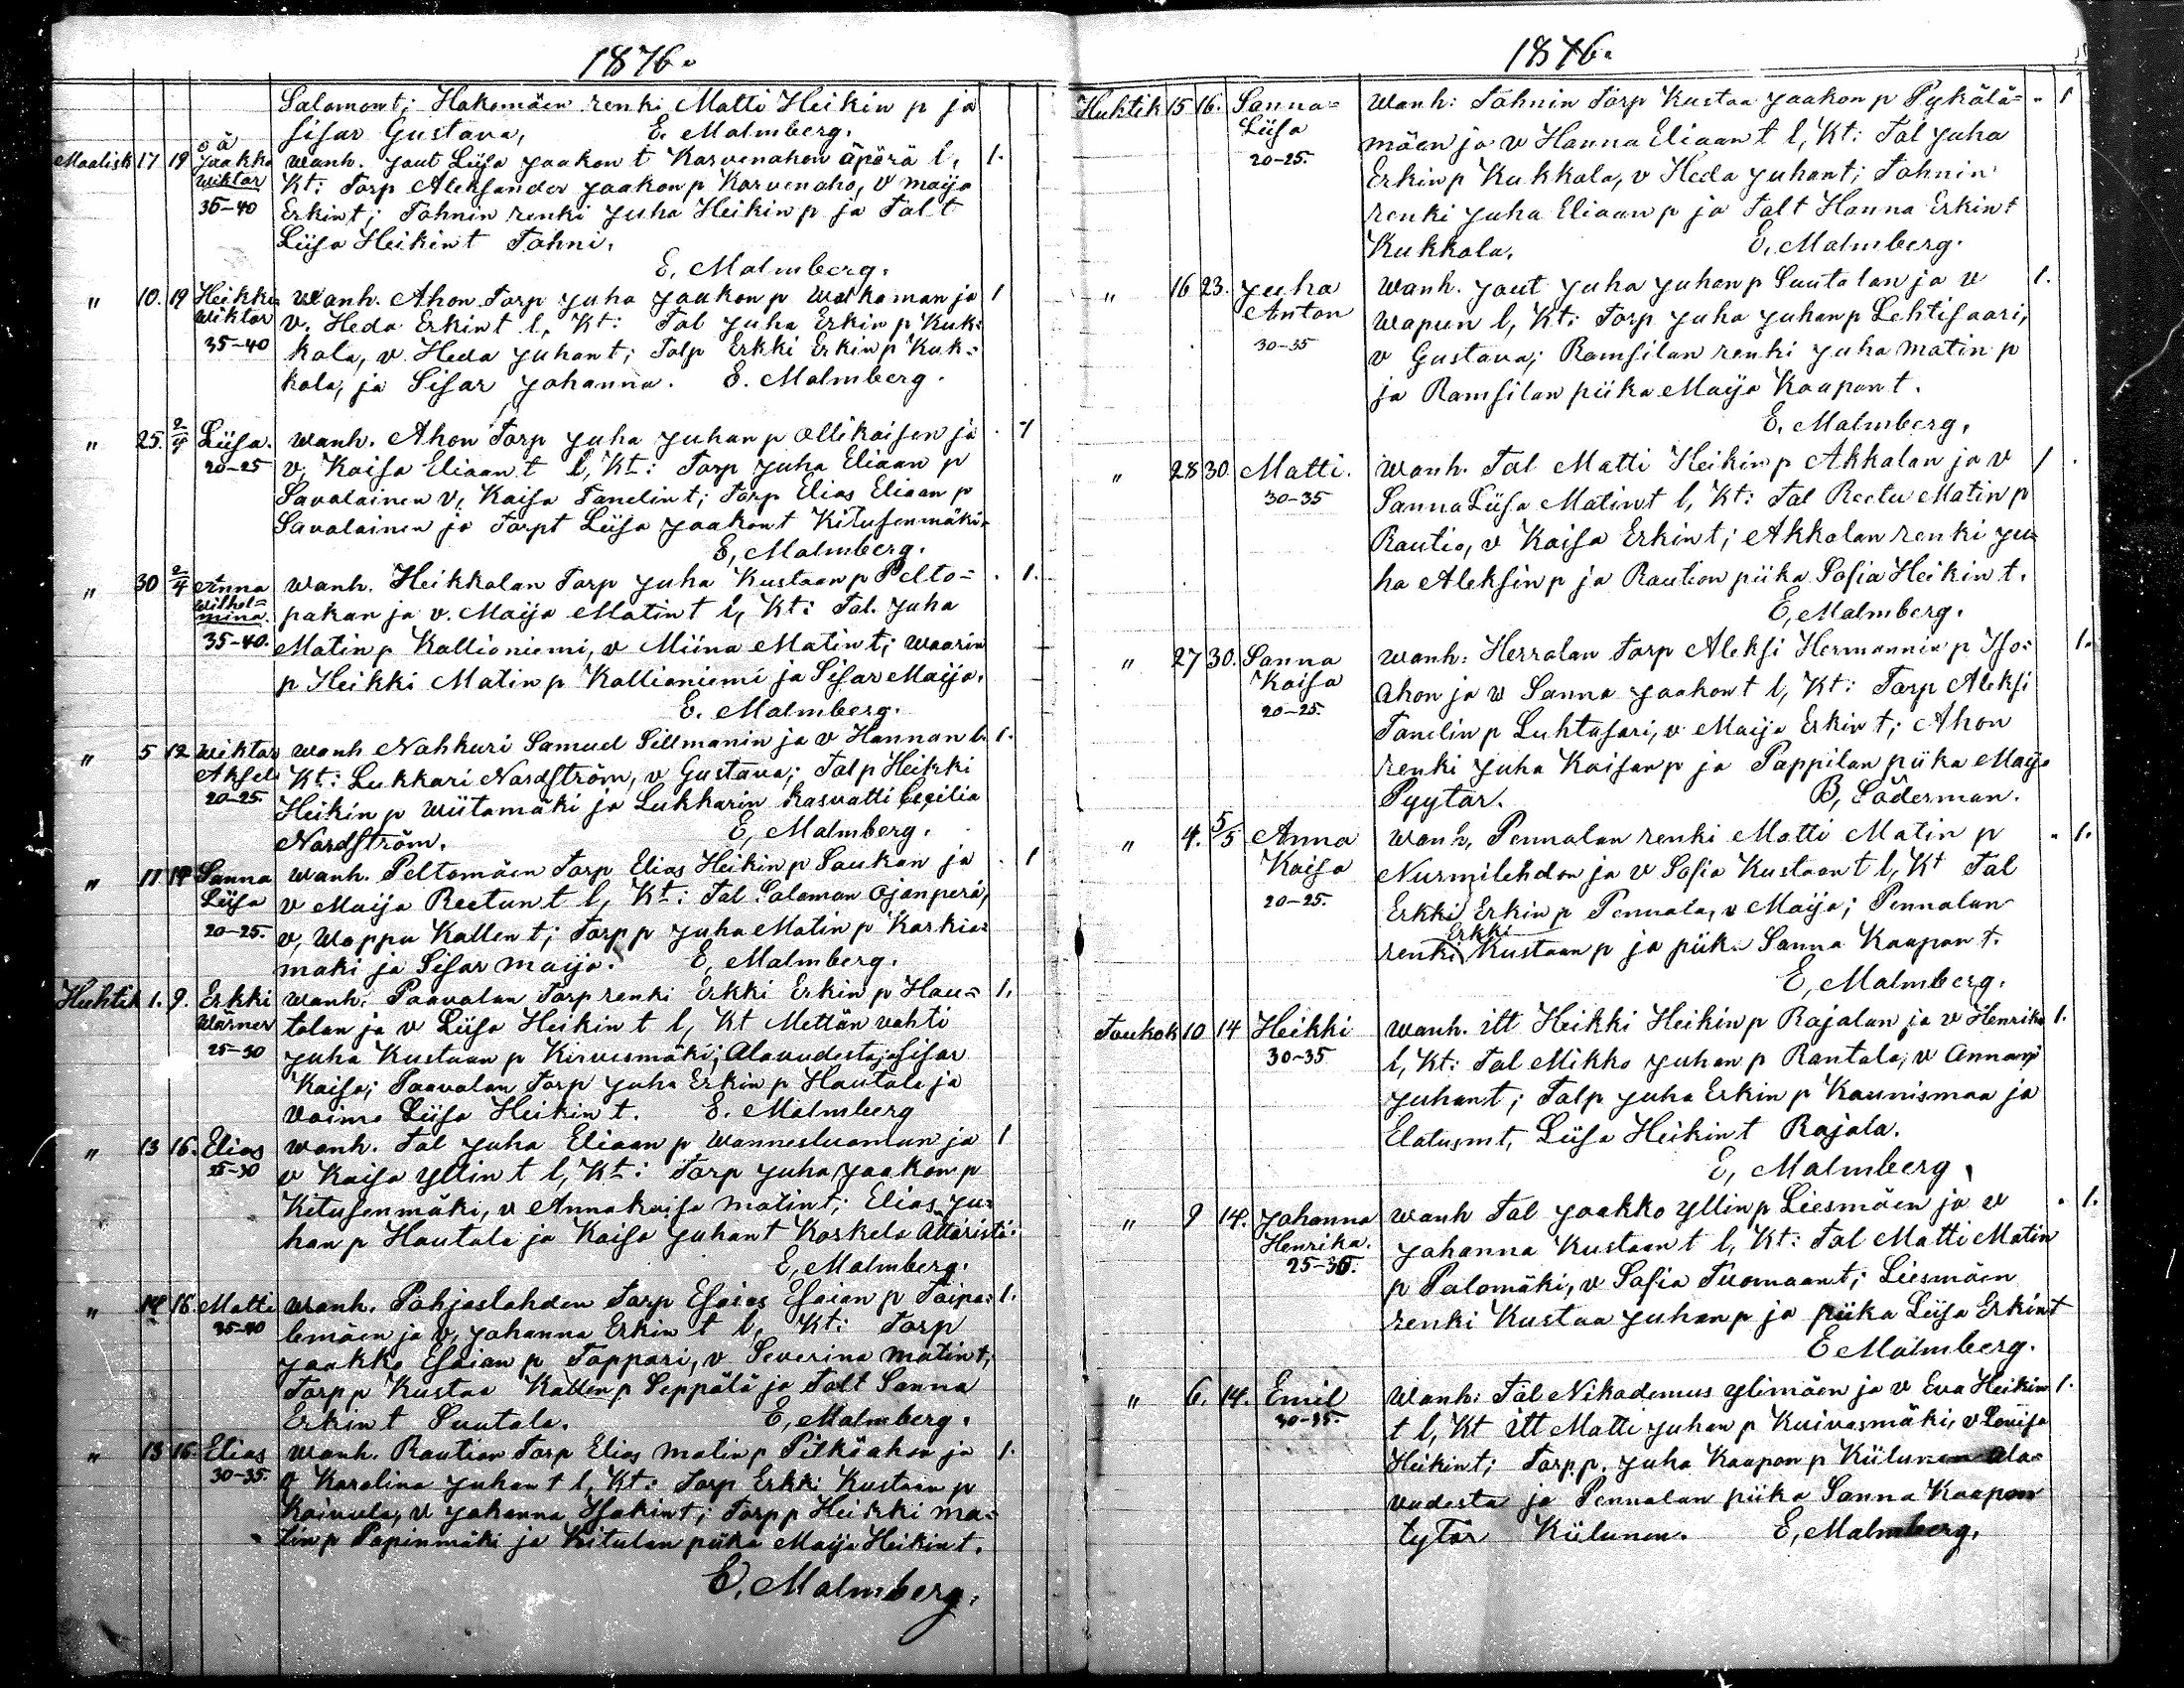 1876.
Salomont; Hakomäen renki Matti Heikin p ja
sisar Gustava, E. Malmberg.
Maalisk 17 19 oä Jaakko wanh. Jaut Liisa Jaakon t Karvenahon äpärä l, 1.
Wiktor Kt: Torp Aleksander Jaakon p Karvenaho, v Maija
35-40 Erkint; Tohnin renki Juha Heikin p ja Tal t
Liisa Heikin t Tohni.
E. Malmberg.
" 10. 19 Heikki wanh. Ahon Torp Juha Jaakon p Walkaman ja 1
Wiktor v. Heda Erkin t l, Kt: Tal Juha Erkin p Kuk:
35-40 kola, v. Heda Juhan t; Talp Erkki Erkin p Kuk=
kola, ja Sisar Johanna. E. Malmberg.
" 25. 2/4 Liisa. wanh. Ahon Torp Juha Juhan p Ollikaisen ja . 1
20-25 v, Kaisa Eliaan t l, Kt: Torp Juha Eliaan p
Savalainen v, Kaisa Tanelin t; Torp Elias Eliaan p
Savalainen ja Torpt Liisa Jaakont Kitusenmäki.
E, Malmberg.
" 30 2/4 Anna wanh. Heikkalan Torp Juha Kustaan p Pelto= . 1.
Wilhel=
mina. pakan ja v. Maija Matin t l, Kt: Tal. Juha
35-40. Matin p Kallioniemi, v Miina Matin t; Waarin
p Heikki Matin p Kallioniemi ja Sisar Maija.
E. Malmberg.
" 5 12 Wiktor wanh Nahkuri Samuel Sillmanin ja v Hannan l. 1.
Aksel Kt: Lukkari Nordström, v Gustava; Tal p Heikki
20-25. Heikin p Wiitamäki ja Lukkarin kasvatti Cecilia
Nordström. E, Malmberg.
" 11 14 Sanna wanh. Peltomäen Torp Elias Heikin p Saukon ja . 1
Liisa v Maija Reetun t l, Kt: Tal Saloman Ojanperä,
20-25. v, Wappu Kallen t; Torp p Juha Matin p Karkia=
maki ja Sisar Maija. E, Malmberg.
Huhtik 1. 9. Erkki wanh: Paavalan Torp renki Erkki Erkin p Hau= 1.
Wärner talan ja v Liisa Heikin t l, Kt Mettän vahti
25-30 Juha Kustaan p Kirvesmäki; Alavudesta ja Sisar
Kaisa; Paavalan Torp Juha Erkin p Hautala ja
Vaimo Liisa Heikin t. E. Malmberg
" 13 16. Elias wanh. Tal Juha Eliaan p Wannesluoman ja 1
25-30 v Kaisa Yllin t l, Kt: Torp Juha Jaakon p
Kitusenmäki, v Annakaisa Matint; Elias Ju=
han p Hautala ja Kaisa Juhan t Koskela Ätäristä.
E, Malmberg.
" 14 16 Matti wanh. Pohjaslahden Torp Esaias Esaian p Taipa= 1.
35-40 lemäen ja v, Johanna Erkin t l, Kt: Torp
Jaakko Esaian p Toppari, v Severina Matin t,
Torp p Kustaa Kallen p Seppälä ja Talt Sanna
Erkin t Suutala. E, Malmberg.
" 13 16 Elias wanh. Raution Torp Elias Matin p Pitkäahon ja 1.
30-35. v Karolina Juhan t l, Kt: Torp Erkki Kustaan p
Koivula, v Johanna Isakin t; Torp p Heikki Ma=
tin p Papinmäki ja Kitulan piika Maija Heikin t.
E. Malmberg.
1876.
Huhtik 15 16. Sanna= wanh: Tohnin Torp Kustaa Jaakon p Pykälä= . 1
Liisa mäen ja v Hanna Eliaan t l, Kt: Tal Juha
20-25. Erkin p Kukkola, v Heda Juhant; Tohnin
renki Juha Eliaan p ja Tal t Hanna Erkin t
Kukkola. E, Malmberg.
" 16 23. Juha wanh. Jaut Juha Juhan p Suutalan ja v 1.
Anton Wapun l, Kt: Torp Juha Juhan p Lehtisaari,
30-35 v Gustava; Ramsilan renki Juha Matin p
ja Ramsilan piika Maija Kaapon t.
E. Malmberg.
" 28 30. Matti. wanh. Tal Matti Heikin p Akkalan ja v 1 .
30-35 Sanna Liisa Matin t l, Kt: Tal Reetu Matin p
Rautio, v Kaisa Erkin t; Akkalan renki Ju=
ha Aleksin p ja Raution piika Sofia Heikin t.
E, Malmberg.
" 27 30. Sanna wanh: Herralan Torp Aleksi Hermannin p Iso= 1.
Kaisa ahon ja v Sanna Jaakon t l, Kt: Torp Aleksi
20-25. Tanelin p Luhtasari, v Maija Erkin t; Ahon
renki Juha Kaisan p ja Pappilan piika Maija
Pyytar. B, Söderman.
" 4. 5/5 Anna wanh, Pennalan renki Matti Matin p . 1.
Kaisa Nurmilehdon ja v Sofia Kustaan t l, Kt Tal
20-25. Erkki Erkin p Pennala, v Maija; Pennalan
renki Erkki Kustaan p ja piika Sanna Kaapon t.
E, Malmberg.
Toukok 10 14 Heikki wanh. itt Heikki Heikin p Rajalan ja v Henrika 1.
30-35 l, Kt: Tal Mikko Juhan p Rantala, v Annam
Juhan t; Talp Juha Erkin p Kaunismaa ja
Elatusmt, Liisa Heikin t Rajala.
E, Malmberg
" 9 14. Johanna wanh Tal Jaakko Yllin p Liesmäen ja v . 1.
Henrika. Johanna Kustaan t l, Kt: Tal Matti Matin
25-30. p Palomäki, v Sofia Tuomaan t; Liesmäen
renki Kustaa Juhan p ja piika Liisa Erkint
E Malmberg.
" 6. 14. Emil Wanh: Tal Nikodemus Ylimäen ja v Eva Heikin 1.
30-35. t l, Kt itt Matti Juhan p Kuivasmäki, v Lovisa
Heikint; Torp p. Juha Kaapon p Kiilunen Ala=
vudesta ja Pennalan piika Sanna Kaapon
tytär Kiilunen. E, Malmberg.